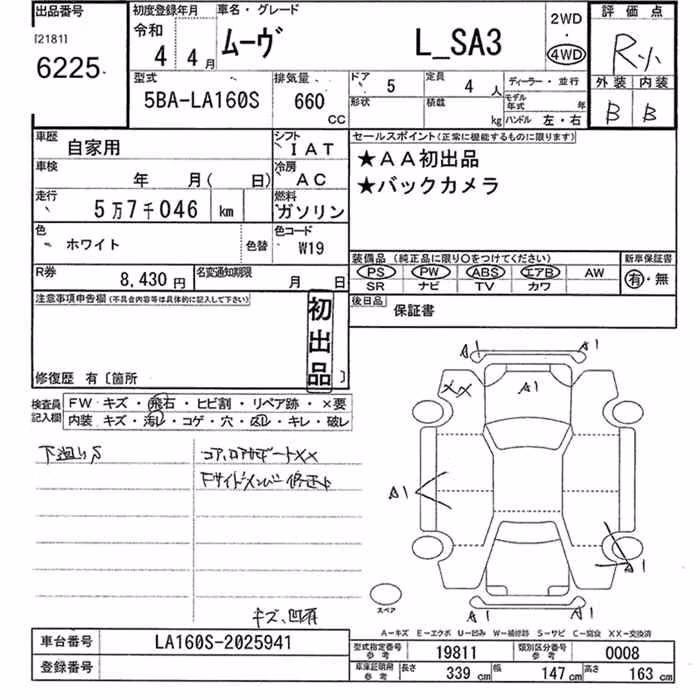 出品番号
[2181]
6225
初度登録年月
令和
4 4月
車名・グレード
ムーヴ L_SA3
2WD
・
4WD
評価点
R小
外装 内装
B B
型式
5BA-LA160S
排気量
660
CC
ドア
5
定員
4 人
形状
積載
kg
ディーラー・並行
モデル年式 年
ハンドル 左・右
車歴
自家用
シフト
IAT
車検
年 月( 日)
冷房
AC
走行
5万7千046 km
燃料
ガソリン
色
ホワイト
色替
色コード
W19
R券
8,430 円
名変通知期限
月 日
セールスポイント(正常に機能するものに限ります)
★AA初出品
★バックカメラ
装備品 (純正品に限り○をつけてください)
PS PW ABS エアB AW
SR ナビ TV カワ
新車保証書
有・無
後日品
保証書
注意事項申告欄(不具合内容等は具体的に記入して下さい)
初出品
修復歴 有〔箇所 〕
検査員記入欄
FW キズ・飛石・ヒビ割・リペア跡・×要
内装 キズ・汚レ・コゲ・穴・凹レ・キレ・破レ
下廻りS
コアロアサポートXX
Fサイドメンバー修正中
キズ、凹有
A1 A1
XX
A1
A1
A1 A1
スペア
A-キズ E-エクボ U-凹み W-補修跡 S-サビ C-腐食 XX-交換済
車台番号
LA160S-2025941
登録番号
型式指定番号
参考
19811
類別区分番号
参考
0008
車庫証明用
参考
長さ
339 cm
幅
147 cm
高さ
163 cm